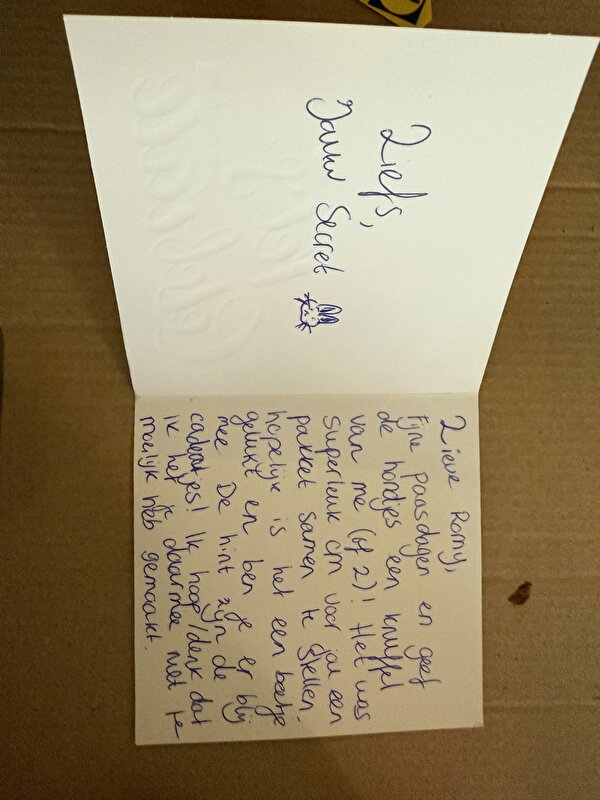 Lieve Romy,
Fijne paasdagen en geef
de hondjes een knuffel
van me (of 2)! Het was
superleuk om voor jou een
pakket samen te stellen.
hopelijk is het een beetje
gelukt en ben je er blij
mee. De hint zijn de
cadeautjes! Ik hoop/denk dat
ik het je daarmee niet te
moeilijk heb gemaakt.
Liefs,
Jouw Secret